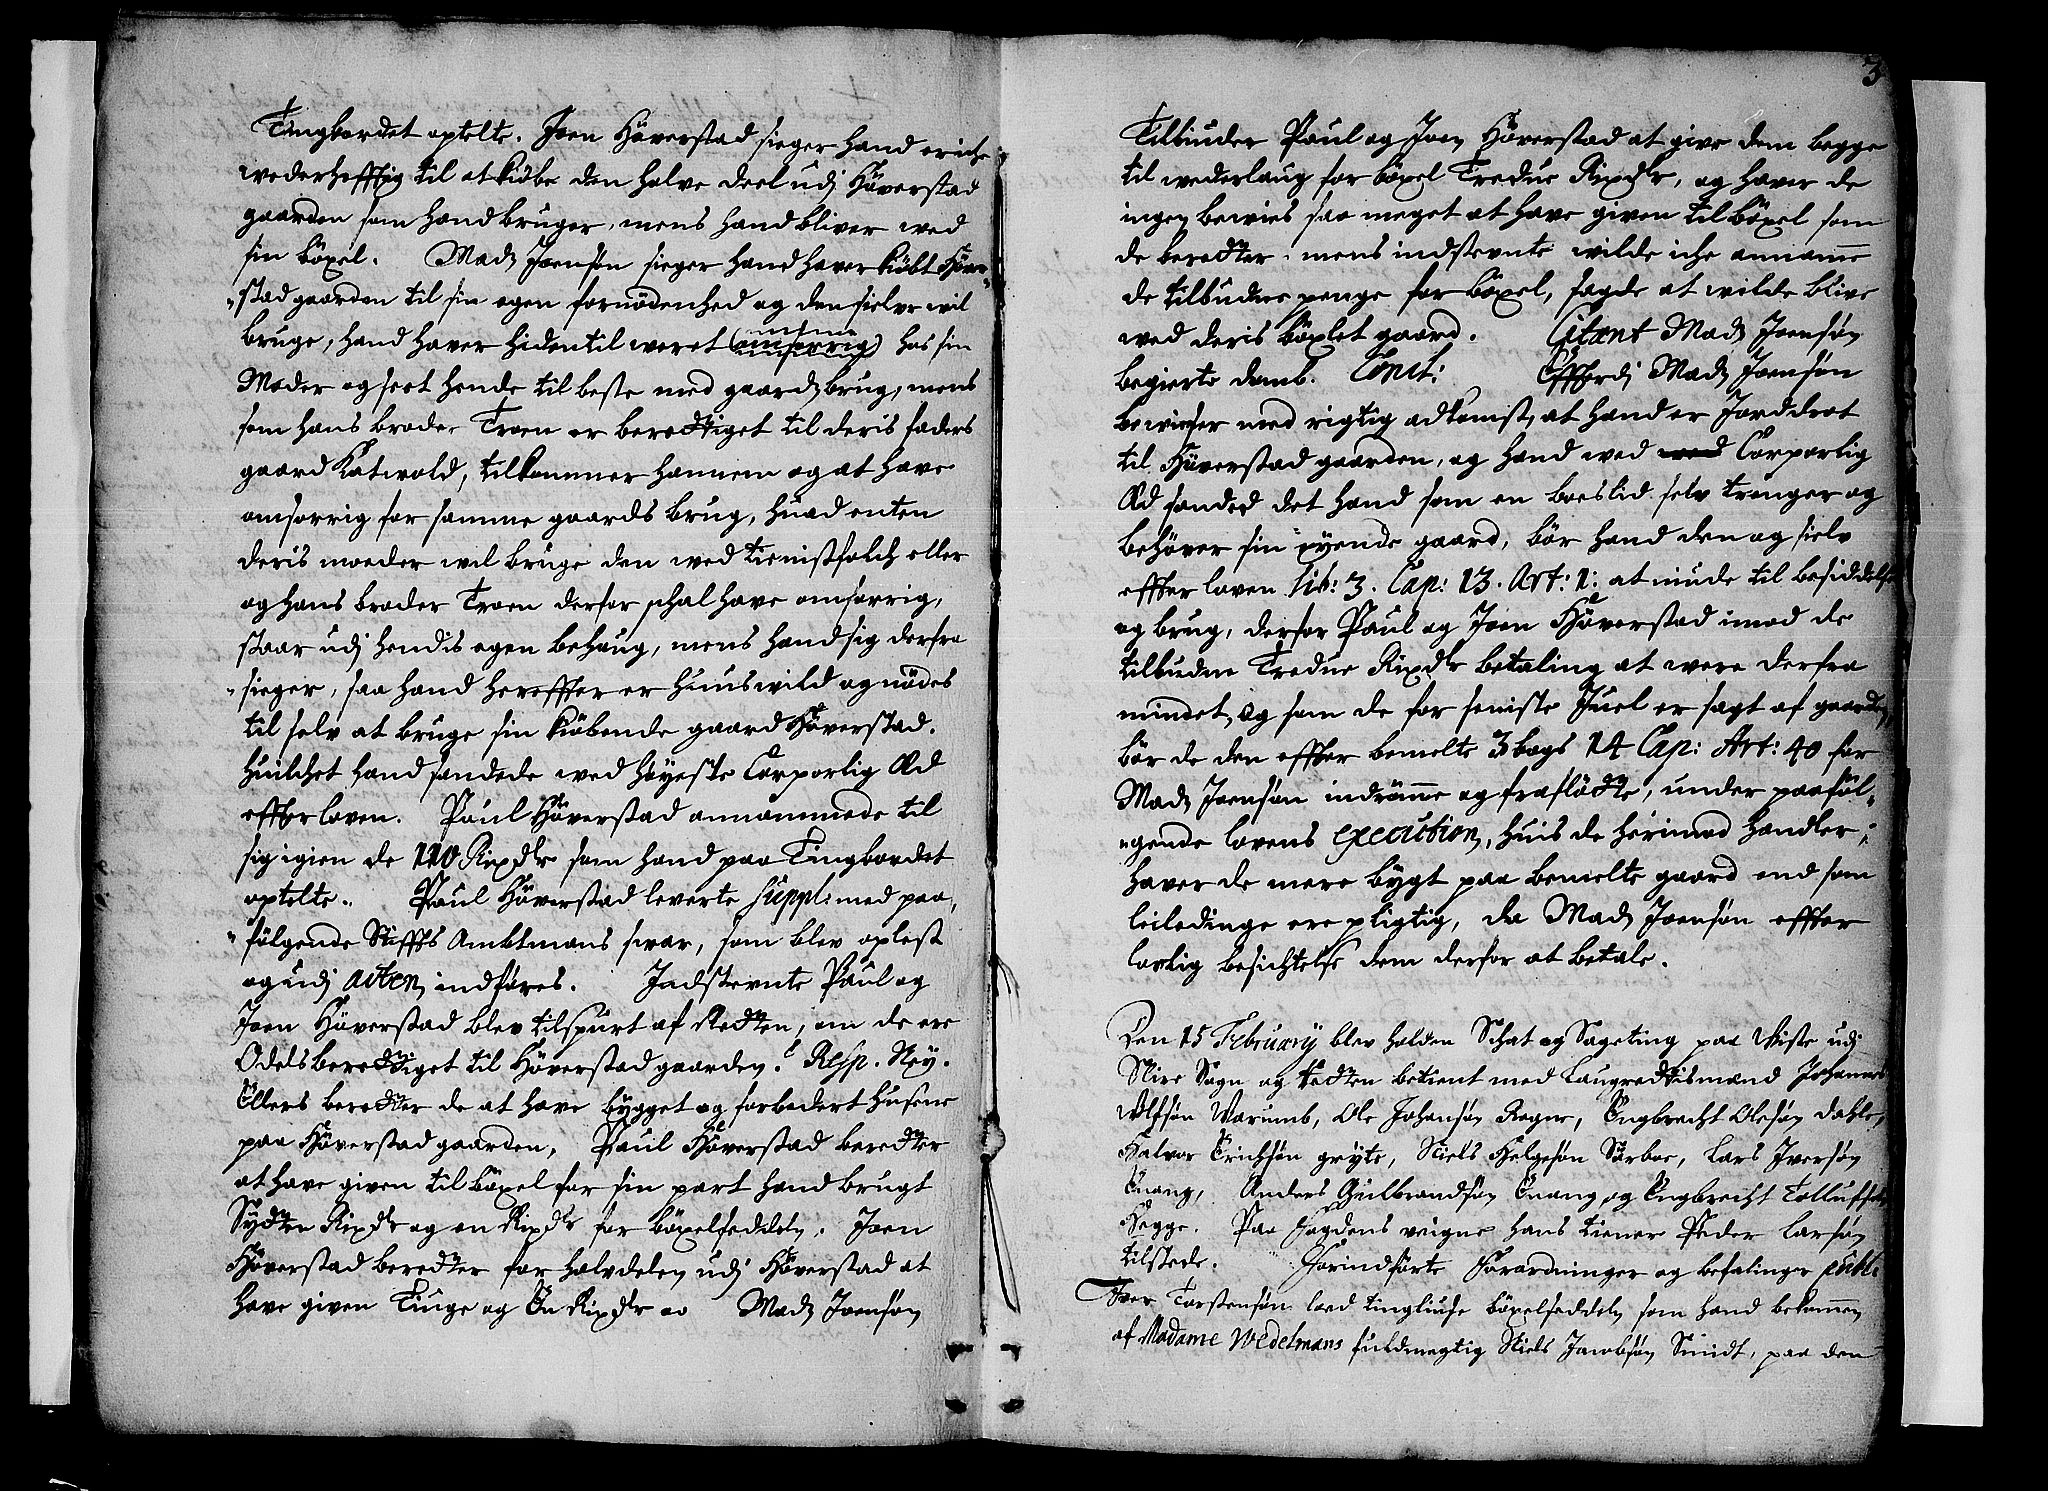 Tingbordet optelte. Joen Höverstad sieger hand er iche
wederhefftig til at kiöbe den halve deel udj Höverstad
gaarden som hand bruger, mens hand bliver wed
sin böxel. Mads Joensøn sieger hand haver kiöbt Höver-
"stad gaarden til sin egen fornödenhed og den sielve wil
bruge, hand haver hidentil weret (omsorrig) hos sin
Moder og seet hende til beste med gaards brug, mens
som hans broder Troen er berettiget til deris faders
gaard Katwold, tilkommer hannem og at have
omsorrig for samme gaards brug, huad enten
deris moeder wil bruge den wed tienistfolch eller
og hans broder Troen derfor schal have omsorrig,
staar udj hendis egen behaug, mens hand sig derfra
"sieger, saa hand hereffter er huuswild og nödes
til selv at bruge sin kiöbende gaard Höverstad.
huilchet hand sandede wed höyeste Corporlig Æd
effter loven. Paul Höverstad annammede til
sig igien de 110 Rixdlr som hand paa Tingbordet
optelte. Paul Höverstad leverte suppl: med paa-
"fölgende Stiffts Ambtmans svar, som blev oplest
og udj acten indføres. Indstevnte Paul og
Joen Höverstad blev tilspurt af Retten, om de ere
Odelsberettiget til Höverstad gaarden? Resp. Ney.
Ellers beretter de at have bygget og forbedert husene
paa Höverstad gaarden, Paul Höverstad beretter
at have given til böxel for sin part hand brugt
Sytten Rixdlr og en Rixdlr for böxelseddeln. Joen
Höverstad beretter for halvdelen udj Höverstad at
have given Tiuge og En Rixdlr Mads Joensøn
3
Tilbiuder Paul og Joen Höverstad at give dem begge
til wederlaug for böxel Tredue Rixdlr, og haver de
ingen bewies saa meget at have given til böxel som
de beretter. mens indstevnte wilde iche annamme
de tilbudne penge for böxel, sagde at wilde blive
wed deris böxlet gaard. Citant Mads Joensøn
begierte domb. Concl: Efftterdj Mads Joensøn
bewiser med rigtig adkomst, at hand er Jorddrot
til Höverstad gaarden, og hand wed Corporlig
Æd sanded det hand som en boeslid selv trenger og
behöver sin eyende gaard, bör hand den og sielv
effter loven Lib: 3. Cap: 13. Art: 1: at niude til besiddelse
og brug, derfor Paul og Joen Höverstad imod de
tilbudne Tredue Rixdlr betaling at were derfra
mindet, og som de for seniste Juel er sagt af gaarden,
bör de den effter bemelte 3 bogs 14 Cap: Art: 40 for
Mads Joensøn indrömme og fraflötte, under paaföl-
"gende lovens execution, huis de herimod handler;
haver de mere bygt paa bemelte gaard end som
leiledinge ere pligtig, da Mads Joensøn effter
lovlig besichtelse dem derfor at betale.
Den 15 February blev holden Schat og Sageting paa Wiste udj
Nire Sogn og Retten betient med Laugrettismænd Johannes
Ulfsøn Warum, Ole Johansøn Rogne, Engbrecht Olesøn dahle,
Halvor Erichsøn gryte, Niels Helgesøn Sörboe, Lars Iversøn
Enang, Anders Gulbrandsøn Enang og Engbrecht Tolluffsøn
Hegge. Paa Fogdens veigne hans tiener Peder Larsøn
tilstede. Forindförte Forordninger og befalinger publ:
Iver Torstensøn loed tingliuse böxelseddeln som hand bekommen
af Madame Wedelmans fuldmegtig Niels Jacobsøn Smidt, paa den